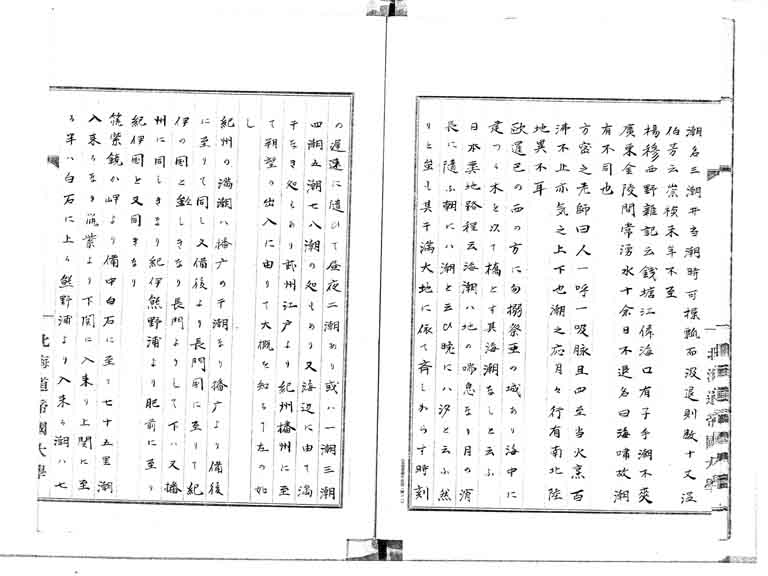 潮名三潮井当潮時可操瓢而没退則数十又没
伯芳云崇禎末年不至
楊穆西野雑記云銭塘江係海口有子午潮不爽
廣東金陵間常湧水十余日不退名曰海嘯故潮
有不同也
方密之老師曰人一呼一吸脉且四至当火烹百
沸不止亦気之上下也潮之応月々行有南北陸
地異不耳
欧邏巴の西の方に勿搦祭亜の城あり海中に
建つる木と以て橋とす其海潮なしと云ふ
日本興地路程云海潮ハ地の喘息なり月の消
長に随ふ朝にハ潮と云ひ晩にハ汐と云ふ然
りと並も其干満大地に依て斉しからす時刻
の遅速に随ひて昼夜二潮あり或ハ一潮三潮
四潮五潮七八潮の処もあり又海辺に由て満
干なき処もあり武州江戸より紀州播州に至
て朔望の出入に由りて大概を知らて左の如
し
紀州の満潮ハ播广の干潮なり播广より備後
に至りて同し又備後より長門国に至りて紀
伊の国と斂しきなり長門よりして下ハ又播
州に同しきなり紀伊熊野浦より肥前に至り
紀伊国と又同きなり
筑紫鏡か岬より備中白石に至て七十五里潮
入来るなり筑紫より下関に入来り上関に至
る半ハ白石に上る熊野浦より入来る潮ハ七
北海道帝國大學
北海道帝國大學